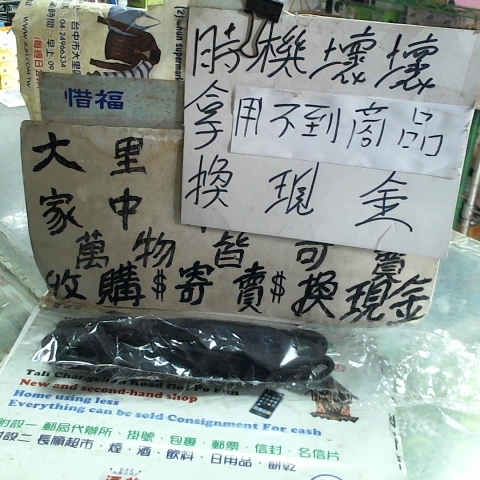 台中市大里區
04 24966334
時間：早上 09
(2) wun supermar
惜福
時機壞壞
拿用不到商品
換現金
大里
家中
萬物皆可賣
收購$寄賣$換現金
New and second-hand shop
Home using less
Everything can be sold Consignment For cash
附設一 郵局代辦所、掛號、包裹、郵票、信封、名信片
附設二 長順超市、煙、酒、飲料、日用品、餅乾